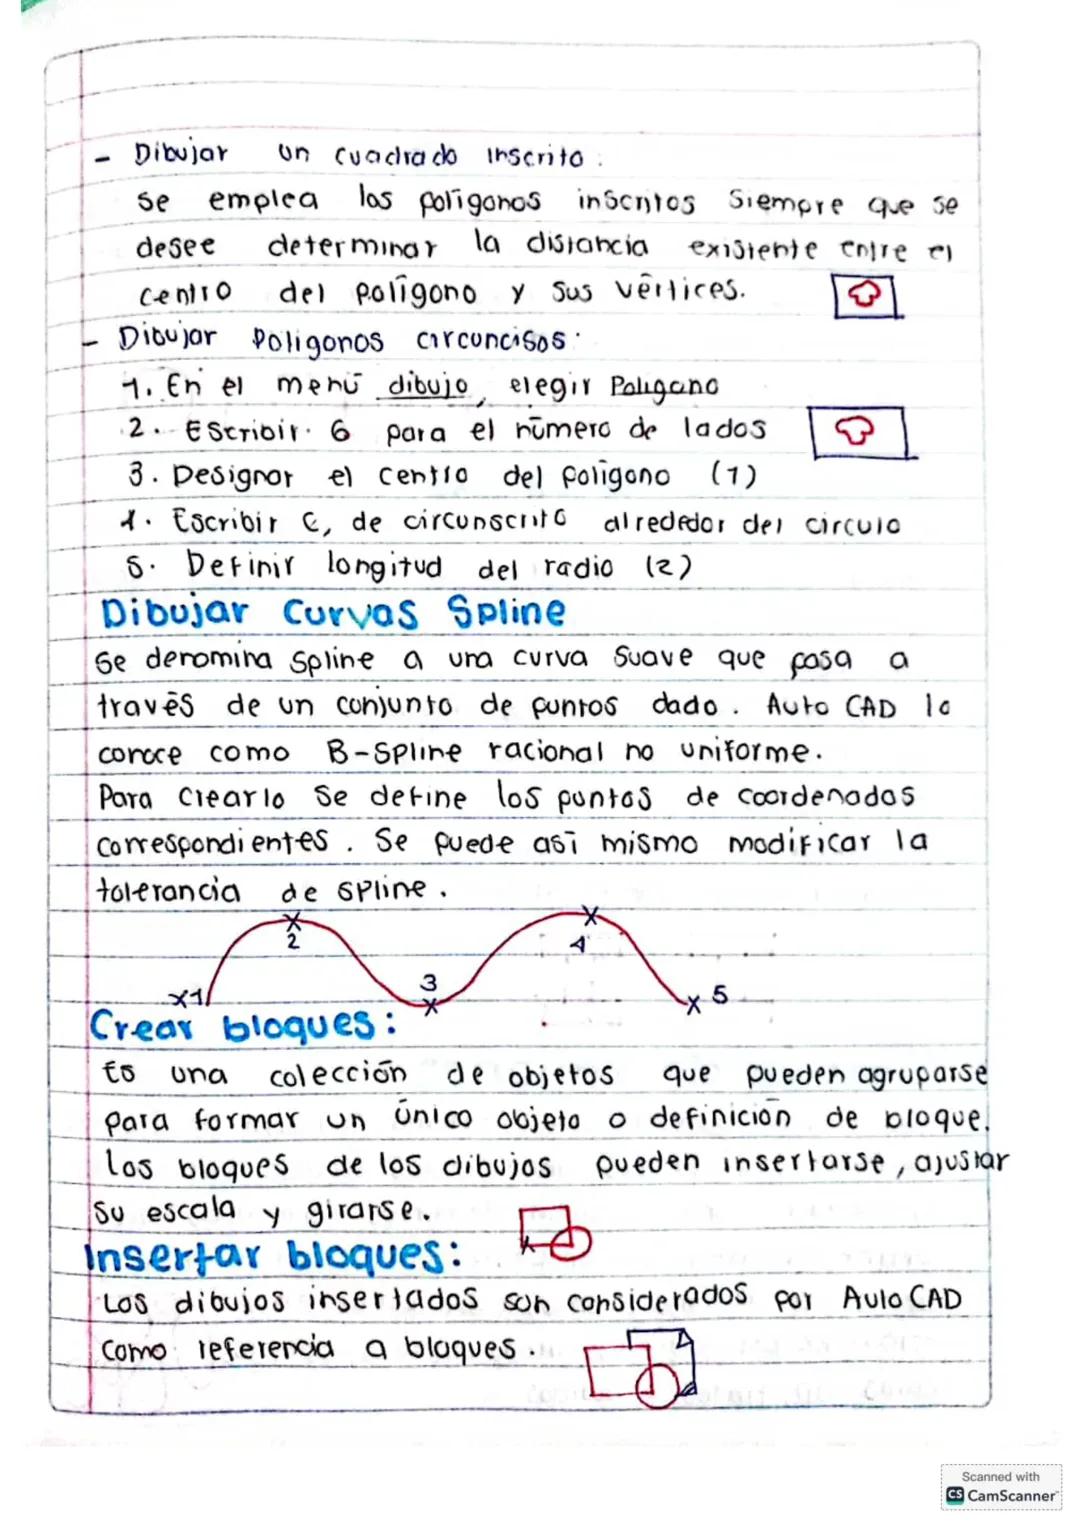 - Dibujar un cuadrado inscrito:
se emplea los polígonos inscritos siempre que se
desee determinar la distancia existente entre el
centro del polígono y sus vértices.
- Dibujar Poligonos circuncisos:
1. En el menú dibujo, elegir Poligono
2. Escribir 6 para el número de lados
3. Designar el centro del polígono (1)
4. Escribir C, de circunscrito alrededor del circulo
5. Definir longitud del radio (2)
Dibujar Curvas Spline
Se denomina Spline a una curva suave que pasa a
través de un conjunto de puntos dado. Auto CAD lo
conoce como B-Spline racional no uniforme.
Para crearlo se define los puntos de coordenadas
correspondientes. Se puede así mismo modificar la
tolerancia de spline.
x1
2
3
4
x 5
Crear bloques:
Es una colección de objetos que pueden agruparse
para formar un único objeto o definición de bloque.
Los bloques de los dibujos pueden insertarse, ajustar
su escala y girarse.
Insertar bloques:
Los dibujos insertados son considerados por AutoCAD
como referencia a bloques.
Scanned with
CS CamScanner